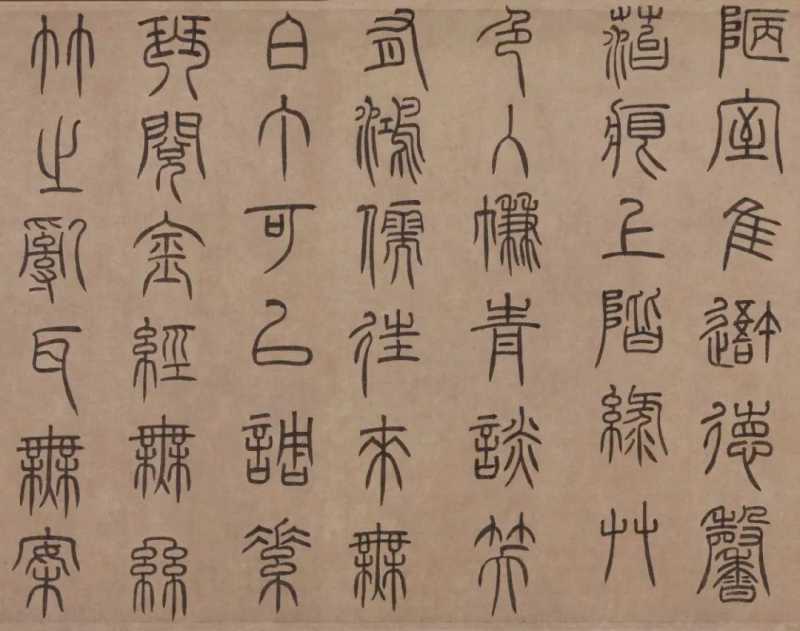 陋室隹吾德馨
菭痕上階綠艸
色入㡘青談笑
有鴻儒往來無
白丁可以調素
琴閱金經無絲
竹之亂耳無案